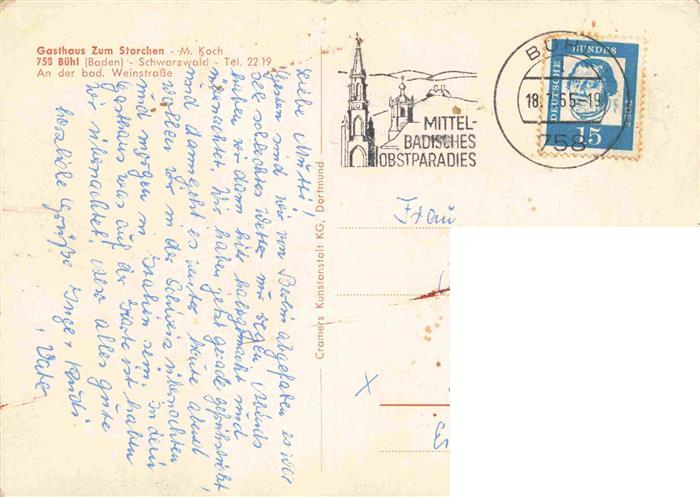 Gasthaus Zum Storchen - M. Koch
758 Bühl (Baden) - Schwarzwald - Tel. 22 19
An der bad. Weinstraße
MITTEL-
BADISCHES
OBSTPARADIES
BÜHL
18. 65-19
758
DEUTSCHE BUNDESPOST
15
Cramers Kunstanstalt KG, Dortmund
Frau
Liebe Mutti!
Gestern sind wir von abgefahren es war
sehr schlechtes Wetter nur Regen Abends
haben wir dann hier haltgemacht und
übernachtet. Wir haben jetzt gerade gefrühstückt
und dann geht es weiter heute abend
wollen wir in der Schweiz übernachten
und morgen in Italien sein. In dem
Gasthaus was auf der Karte ist haben
wir übernachtet. Also alles gute
herzliche Grüße Inge + Rudi